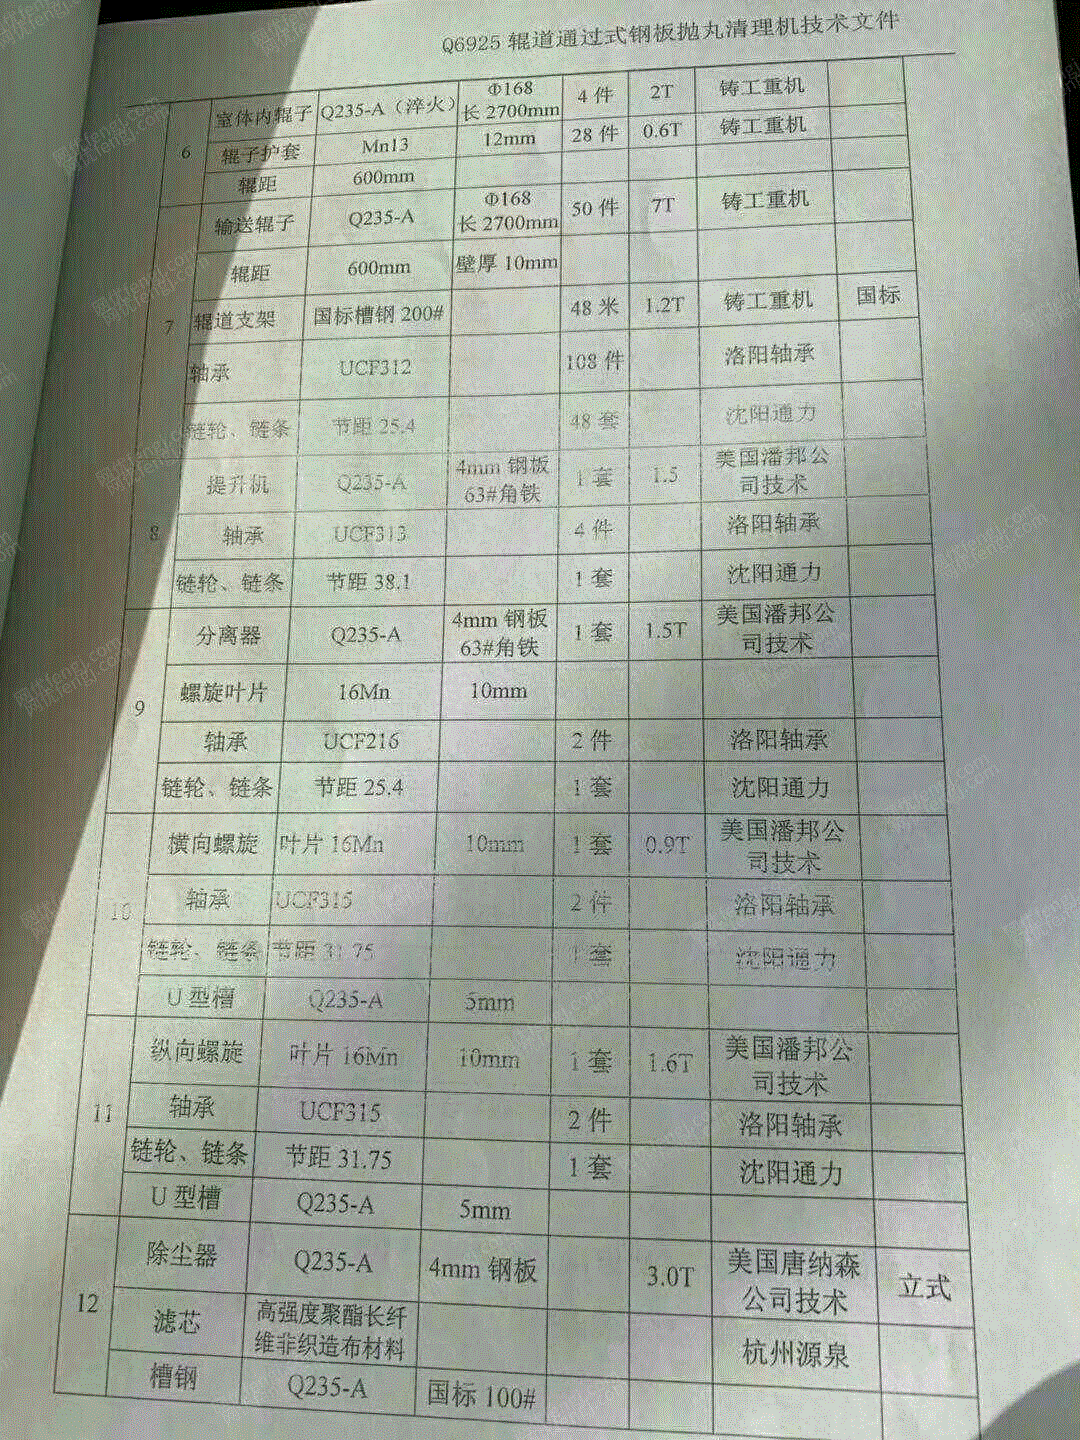 Q6925 辊道通过式钢板抛丸清理机技术文件
6 室体内辊子 Q235-A（淬火） Φ168 长 2700mm 4 件 2T 铸工重机
辊子护套 Mn13 12mm 28 件 0.6T 铸工重机
辊距 600mm
7 输送辊子 Q235-A Φ168 长 2700mm 50 件 7T 铸工重机
辊距 600mm 壁厚 10mm
辊道支架 国标槽钢 200# 48 米 1.2T 铸工重机 国标
轴承 UCF312 108 件 洛阳轴承
链轮、链条 节距 25.4 48 套 沈阳通力
8 提升机 Q235-A 4mm 钢板 63#角铁 1 套 1.5 美国潘邦公司技术
轴承 UCF313 4 件 洛阳轴承
链轮、链条 节距 38.1 1 套 沈阳通力
9 分离器 Q235-A 4mm 钢板 63#角铁 1 套 1.5T 美国潘邦公司技术
螺旋叶片 16Mn 10mm
轴承 UCF216 2 件 洛阳轴承
链轮、链条 节距 25.4 1 套 沈阳通力
10 横向螺旋 叶片 16Mn 10mm 1 套 0.9T 美国潘邦公司技术
轴承 UCF315 2 件 洛阳轴承
链轮、链条 节距 31.75 1 套 沈阳通力
U 型槽 Q235-A 5mm
11 纵向螺旋 叶片 16Mn 10mm 1 套 1.6T 美国潘邦公司技术
轴承 UCF315 2 件 洛阳轴承
链轮、链条 节距 31.75 1 套 沈阳通力
U 型槽 Q235-A 5mm
12 除尘器 Q235-A 4mm 钢板 3.0T 美国唐纳森公司技术 立式
滤芯 高强度聚酯长纤维非织造布材料 杭州源泉
槽钢 Q235-A 国标 100#